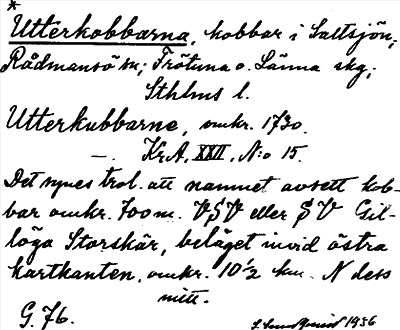 *
Utterkobbarna, kobbar i Saltsjön;
Rådmansö sn; Frötuna o. Länna skg;
Sthlms l.
Utterkubbarne, omkr. 1730.
—. Kr.A, XXII, N:o 15.
Det synes trol. att namnet avsett kob-
bar omkr. 700 m. VSV eller SV Gil-
löga Storskär, beläget invid östra
kartkanten, omkr. 10½ km. N dess
mitt.
G. 76. 1936